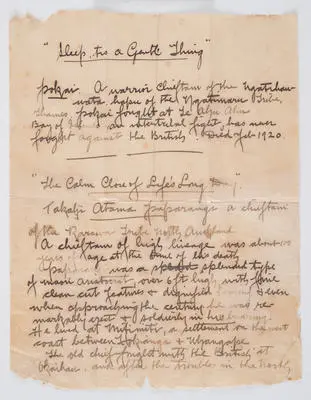 "Sleep, tis a Gentle Thing"
pokai. A warrior Chieftain of the Ngatihau
hapu of the Ngatimaru Tribe,
Thames. pokai fought at Te Ahu Ahu
Bay of an intertribal fight, has never
fought against the British. Died Feb 1920.
"The Calm Close of Life's Long Day"
Takahi Atama paparangi a chieftain
of the Rarawa Tribe North Auckland
A chieftain of high lineage was about
years of age at the time of his death
was a splended type
of maori aristocrat over 6ft high with fine
clean cut features & dignified even
when approaching the century he was re-
markably erect & soldierly in his bearing.
He lived at Mitimiti, a settlement on the west
coast between Hokianga & Whangape.
The old chief fought with the British at
Okaihau, and after the troubles in the North,